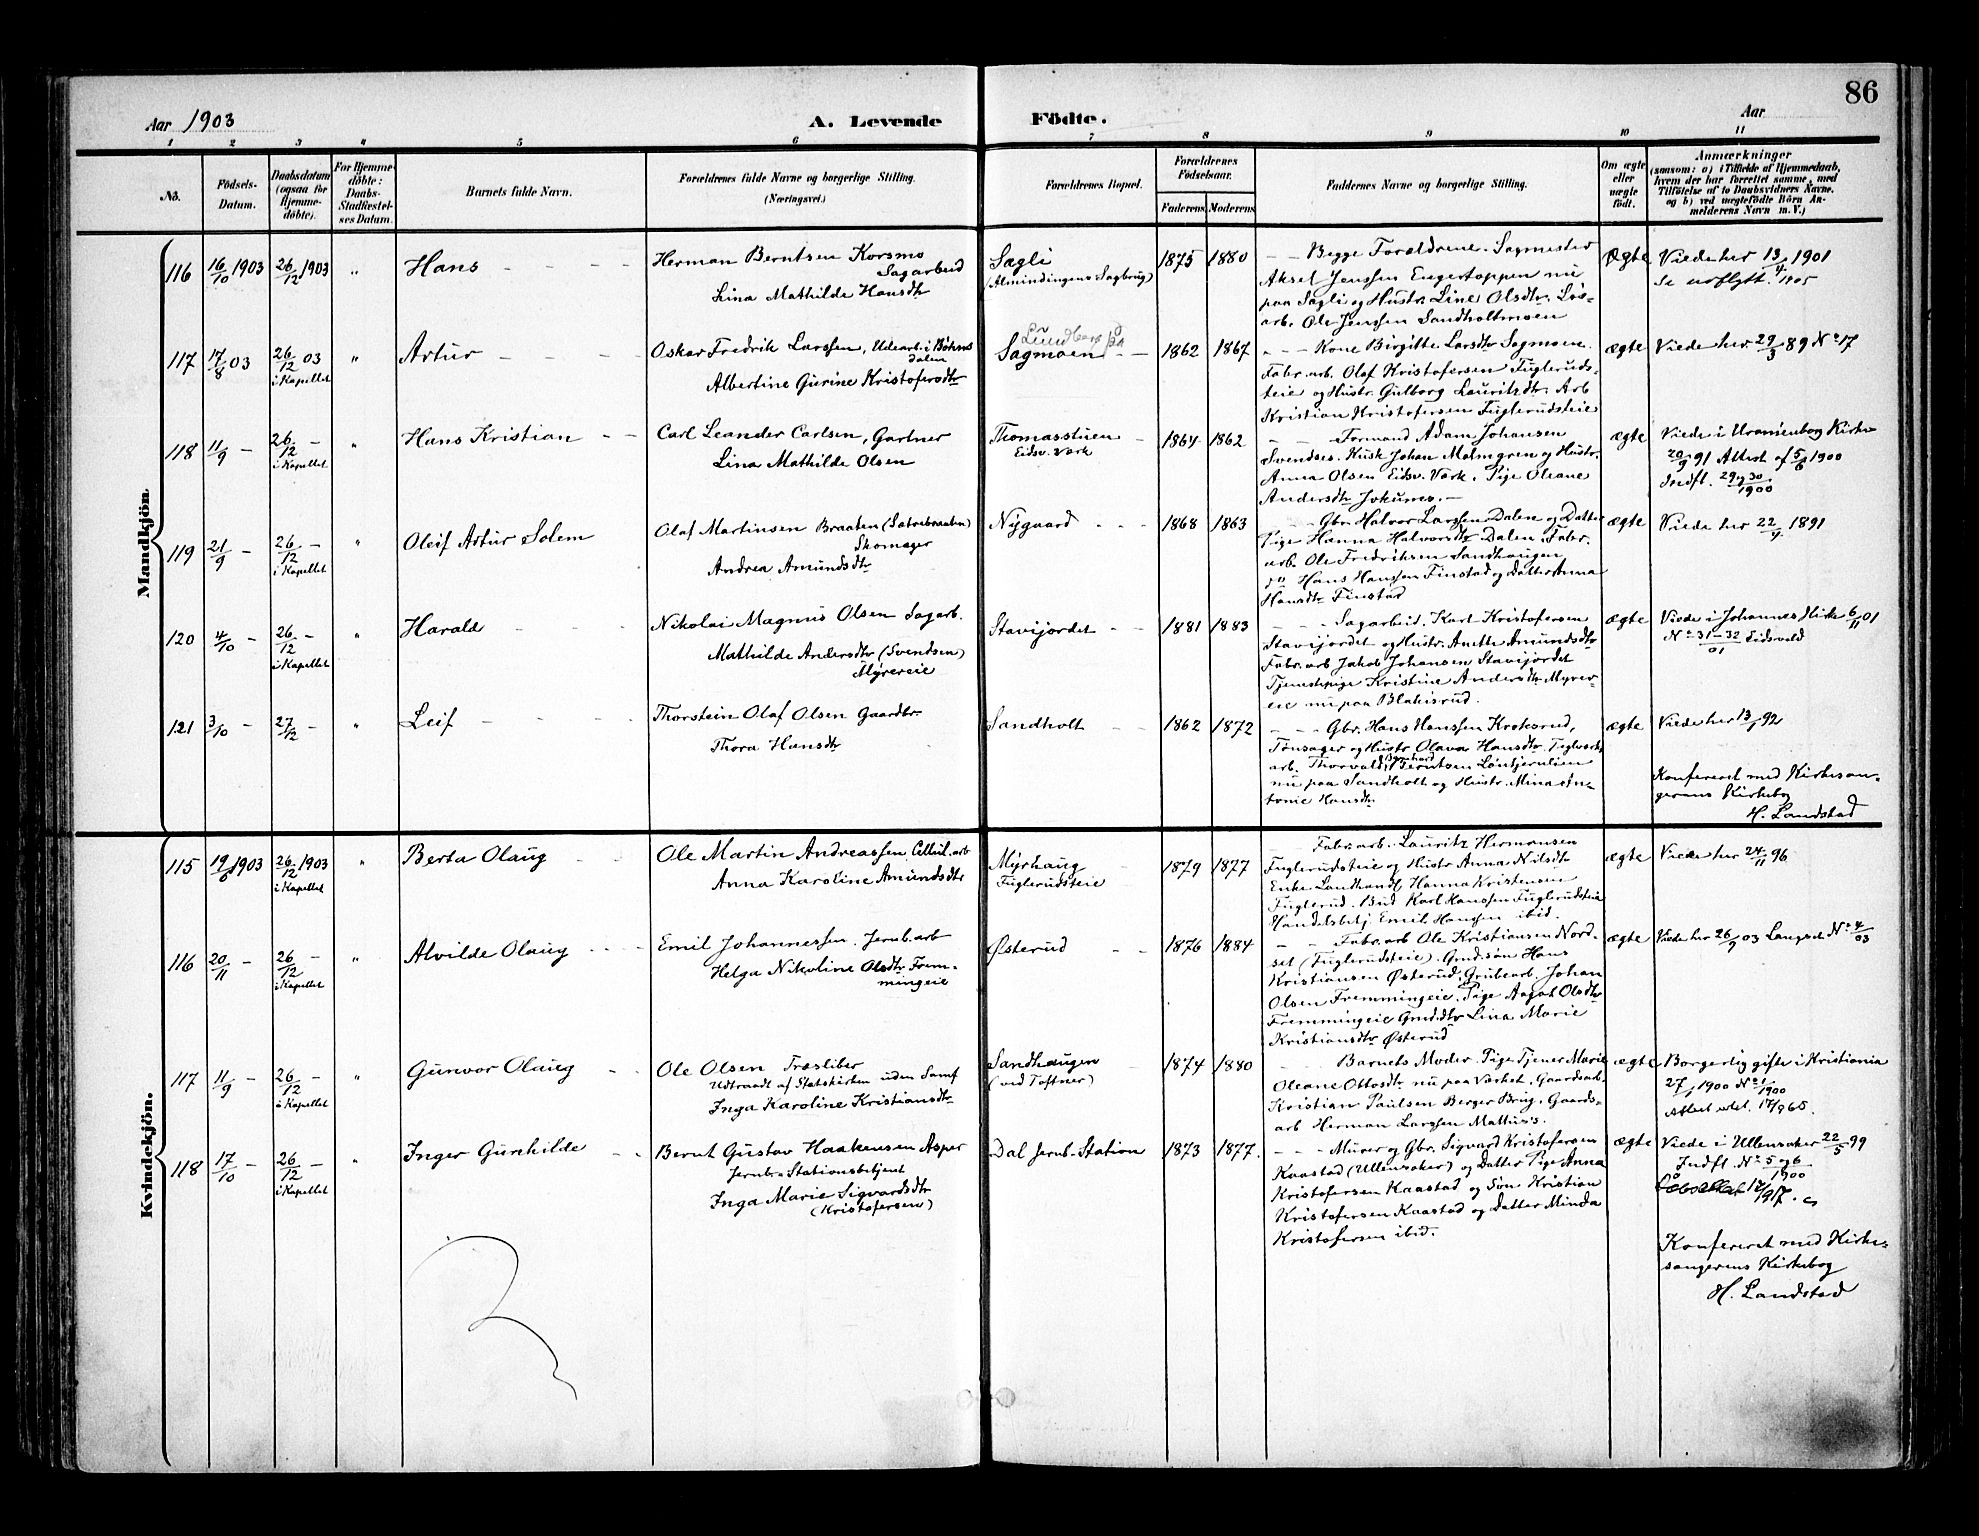 86
Aar 1903
A. Levende
Födte.
Aar
1 2 3 4 5 6 7 8 9 10 11
No.
Födsels-
Datum.
Daabsdatum
(ogsaa for
Hjemme-
döbte).
For Hjemme-
döbte:
Daabs
Stadfæstel-
ses Datum.
Barnets fulde Navn.
Forældrenes fulde Navne og borgerlige Stilling.
(Næringsvei.)
Forældrenes Bopæl.
Forældrenes
Födselsaar.
Faderens Moderens
Faddernes Navne og borgerlige Stilling.
Om ægte
eller
uægte
födt.
Anmærkninger
(saasom: a) i Tilfælde af Hjemmedaab,
hvem der har forrettet samme, med
Tilföielse af to Daabsvidners Navne.
og b) ved uægtefödte Börn An-
melderens Navn m. V.)
Mandkjön.
116
16/10 1903
26/12 1903
"
Hans
Herman Berntsen Korsmo
Sagarbeid
Lina Mathilde Hansdtr
Sagli
(Almindingens Sagbrug)
1875 1880
Begge Forældrene. Sagmester
Aksel Jenssen Engertoppen nu
paa Sagli og Hustr. Line Olsdtr. Løs-
arb. Ole Jenssen Sandholtmoen
Ægte
Viede her 13/4 1901
Se udflytt. 1905
117
17/8 03
26/12 03
i Kapellet
"
Artur
Oskar Fredrik Larssen, Udearb. i Bøhns
dalen
Albertine Gurine Kristofersdtr
Lundberg
Sagmoen
1862 1867
Kone Birgitte Larsdtr Sagmoen.
Fabr. arb. Olaf Kristofersen Fuglerud-
steie og Hustr. Gulborg Lauritsdtr. Arb
Kristian Kristofersen Fuglerudsteie
ægte
Viede her 29/3 89 No 17
118
11/9 –
26/12 –
i Kapellet
"
Hans Kristian
Carl Leander Carlsen, Gartner
Lina Mathilde Olsen
Thomasstuen
Eidsv. Værk
1864 1862
Formand Adam Johansen
Svendses. Kusk Johan Malmgren og Hustr.
Anna Olsen Eidsv. Værk. Pige Oleane
Andersdtr Jokumo.
ægte
Viede i Uranienborg Kirke
20/9 91 Attest af 5/6 1900
Indfl. 29 og 30/1900
119
21/9
26/12 –
i Kapellet
"
Oleif Artur Solem
Olaf Martinsen Braaten (Sætrebraaten)
Skomager
Andrea Amundsdtr
Nygaard
1868 1863
Gbr. Halvor Larssen Dalen og Datter
Pige Hanna Halvorsdtr Dalen. Fabr.
arb. Ole Fredriksen Sandhaugen
Hans Hanssen Finstad og Datter Anna
Hansdtr Finstad
ægte
Viede her 22/4 1891
120
4/10 –
26/12 –
i Kapellet
"
Harald
Nikolai Magnus Olsen Sagarb.
Mathilde Andersdtr (Svendsen)
Myrereie
Stavijordet
1881 1883
Sagarbeid. Karl Kristofersen
Stavijordet og Hustr. Anette Amundsdtr
Fabr. arb Jakob Johansen Stavijordet
Tjenestpige Kristine Andersdtr Myrer-
eie nu paa Blakisrud.
ægte
Viede i Johannes Kirke 6/11 01
No 31–32/01 Eidsvold
121
3/10 –
27/12 –
"
Leif
Thorstein Olaf Olsen Gaardbr.
Thora Hansdtr
Sandholt
1862 1872
Gbr. Hans Hanssen Krokesrud,
Tønsager og Hustr Olava Hansdtr. Teglverks
arb. Thorvald Bernhard Berntsen Løntjernlien
nu paa Sandholt og Hustr. Mina An-
tonie Hansdtr
ægte
Viede her 13/1 92
Konfereret med Kirkesan-
gerens Kirkebog
H. Landstad
Kvindekjön.
115
19/6 1903
26/12 1903
i Kapellet
"
Berta Olaug
Ole Martin Andreassen, Cellul. arb
Anna Karoline Amundsdtr
Myrhaug
Fuglerudsteie
1879 1877
Fabr. arb. Lauritz Hermansen
Fuglerudsteie og Hustr Anna Nilsdtr
Enke Landhandl. Hanna Kristensen
Fuglerud. Bud Karl Hanssen Fuglerudsteie
Handelsbetj Emil Hanssen ibid.
ægte
Viede her 24/11 96
116
20/11 –
26/12 –
i Kapellet
"
Alvilde Olaug
Emil Johannessen. Jernb. arb
Helga Nikoline Olsdtr Frem-
mingeie
Østerud
1876 1884
Fabr. arb Ole Kristiansen Nord-
set (Fuglerudsteie). Grmd. søn Hans
Kristiansen Østerud, Grubearb. Johan
Olsen Fremmingeie. Pige Aagot Olsdtr
Fremmingeie Gmd. dtr Lina Marie
Kristiansdtr Østerud
ægte
Viede her 26/9 03 Langset No 4/03
117
11/9 –
26/12 –
i Kapellet
"
Gunvor Olaug
Ole Olsen Træsliber
Udtraadt af Statskirken uden Samf
Inga Karoline Kristiansdtr
Sandhaugen
(ved Toftner)
1874 1880
Barnets Moder. Pige Tjener Marie
Oleane Ottosdtr nu paa Værket, Gaardsarb.
Kristian Paulsen Berger Brug. Gaards-
arb Herman Larssen Mattis's.
ægte
Borgerlig gifte i Kristiania
27/1 1900 No 1/1900
Attest udst. 17/9 65.
118
17/10 –
26/12 –
i Kapellet
Inger Gunhilde
Bernt Gustav Haakensen Asper
Jernb. Stationsbetjent
Inga Marie Sigvardsdtr
(Kristofersen)
Dal Jernb. Station
1873 1877.
Murer og Gbr. Sigvard Kristofersen
Kaastad (Ullensaker) og Datter Pige Anna
Kristofersen Kaastad og Søn Kristian
Kristofersen Kaastad og Datter Minda
Kristofersen ibid.
ægte
Viede i Ullensaker 22/5 99
Indfl. No 5 og 6/1900
Konfereret med Kirke-
sangerens Kirkebog
H. Landstad